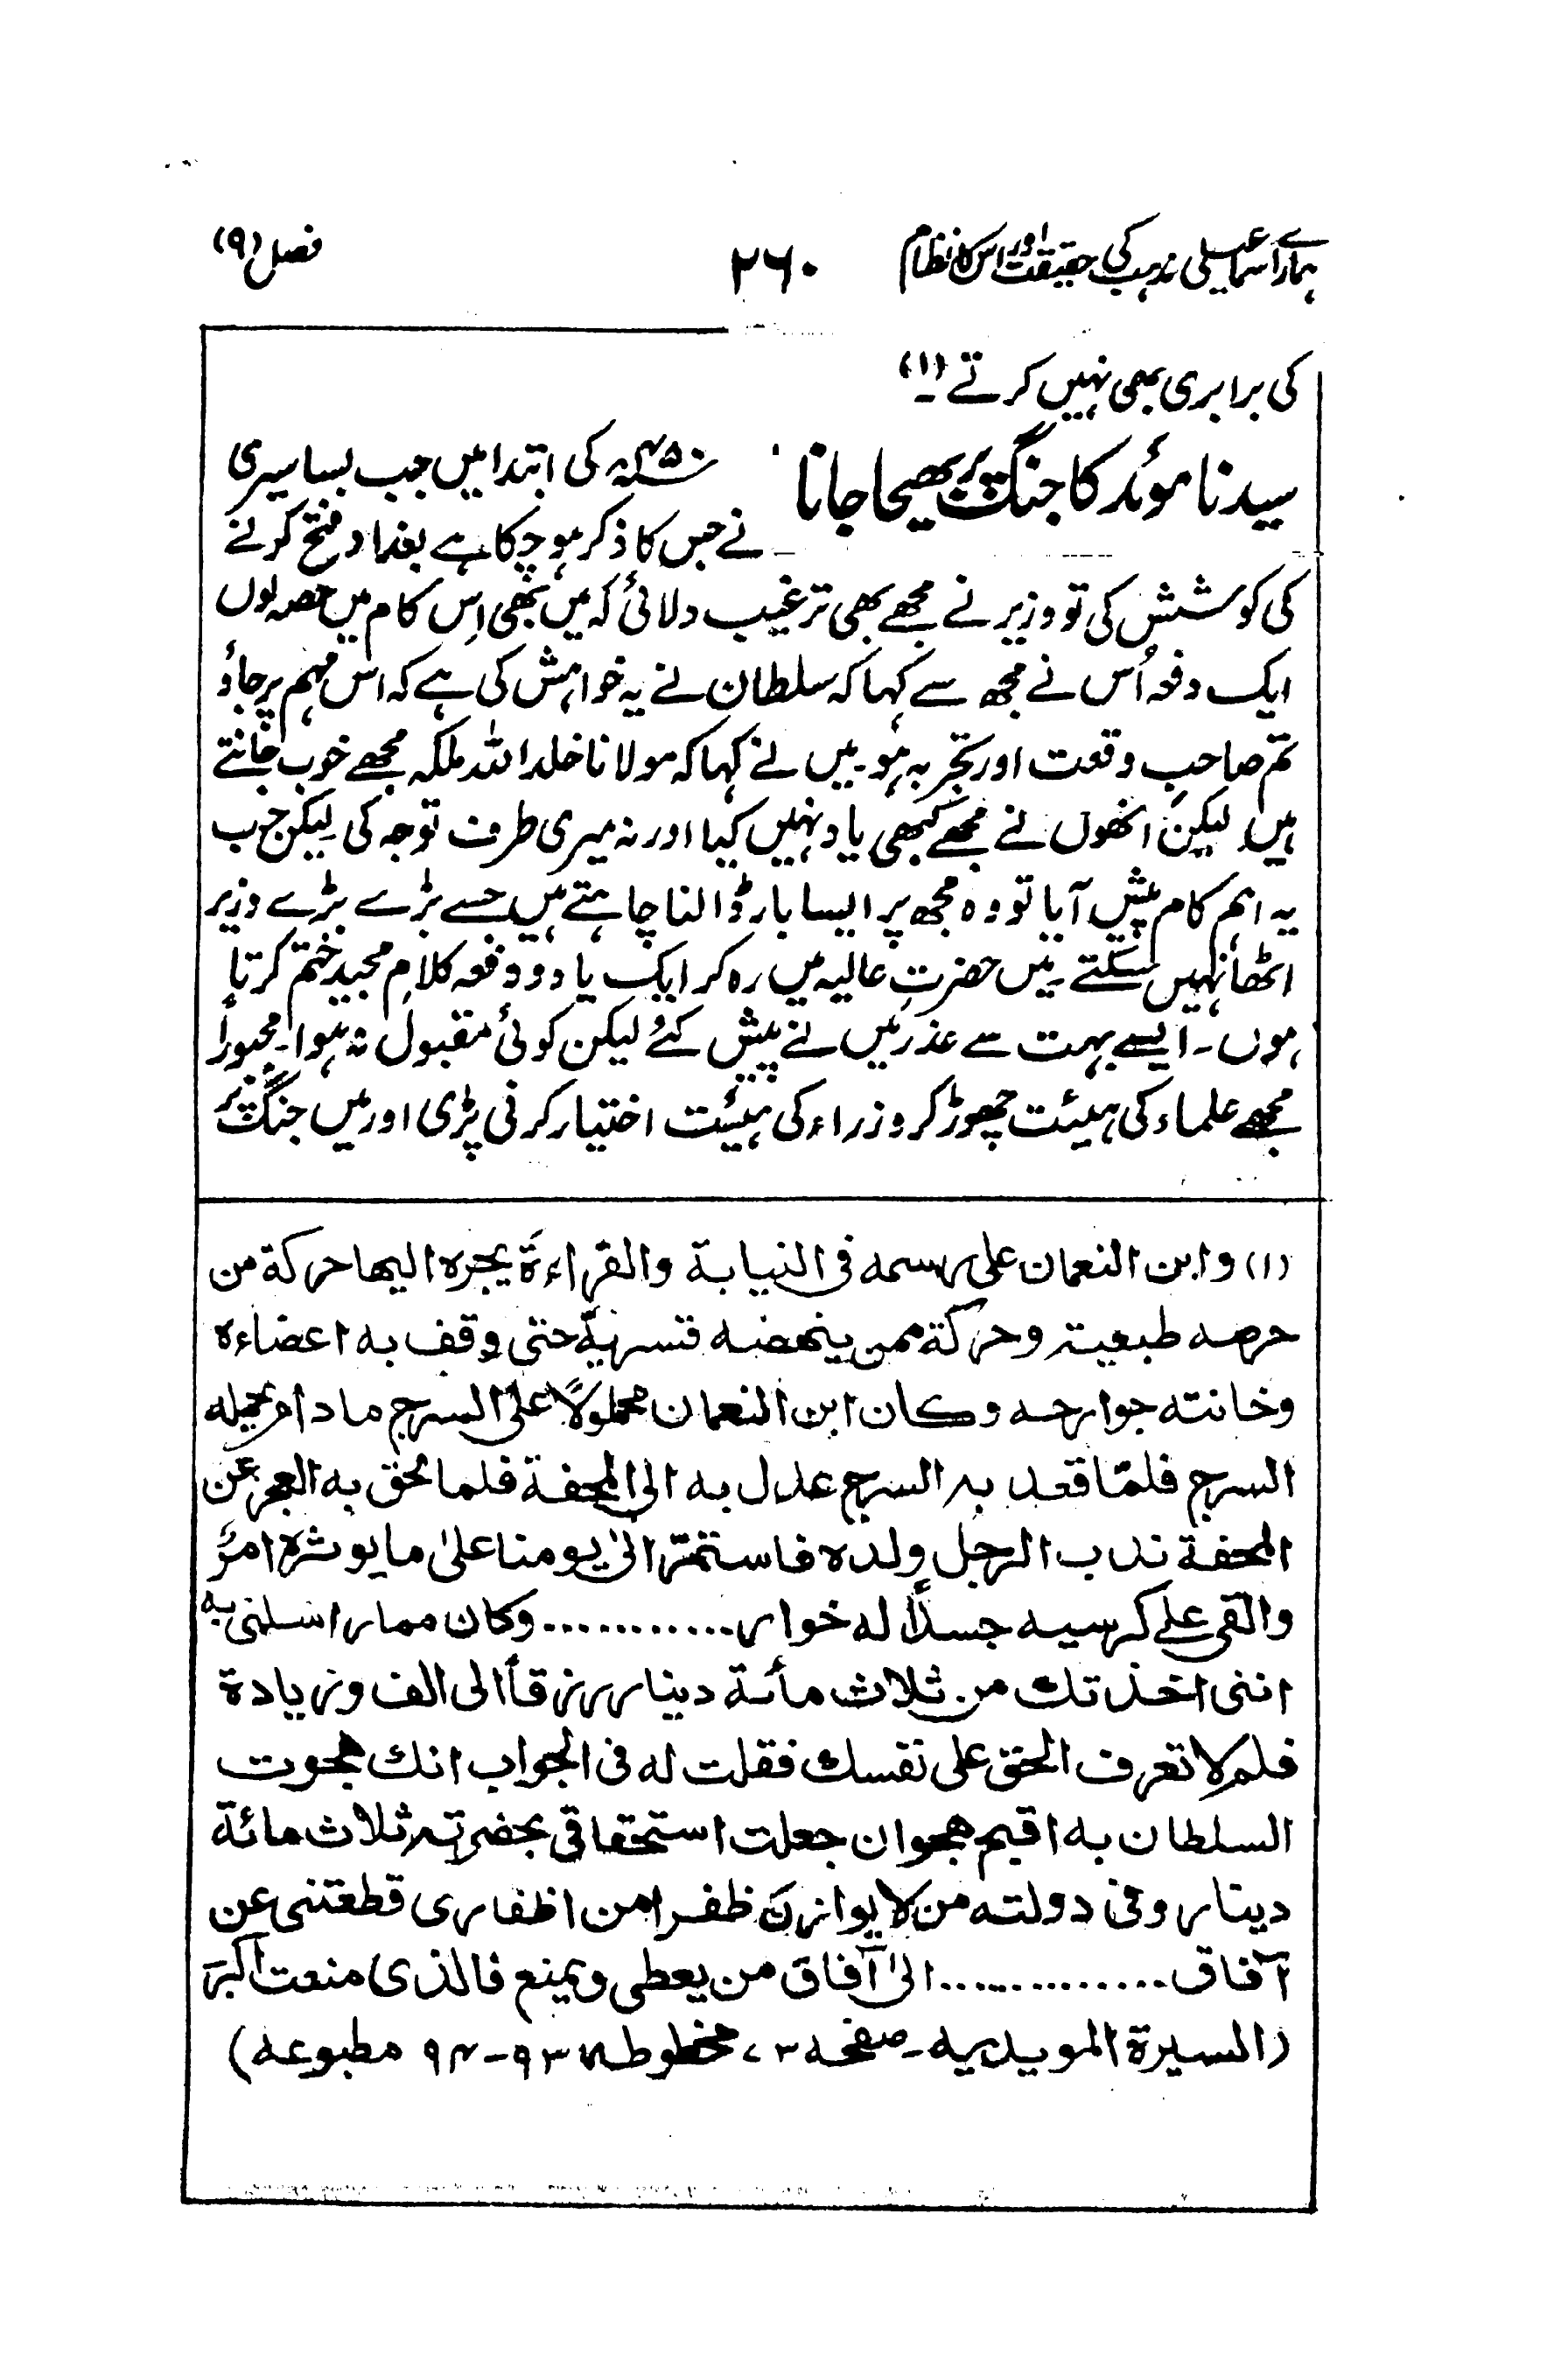 ہمارے اسماعیلی مذہب کی حقیقت اور اس کا نظام ۲۶۰ فصل (۹)
کی برابری بھی نہیں کرتے (۱)۔
سیدنا موئد کا جنگ پر بھیجا جانا
۴۵۰ھ کی ابتدا میں جب بساسیری
نے جس کا ذکر ہو چکا ہے بغداد فتح کرنے
کی کوشش کی تو وزیر نے مجھے بھی ترغیب دلائی کہ میں بھی اِس کام میں حصہ لوں
ایک دفعہ اُس نے مجھ سے کہا کہ سلطان نے یہ خواہش کی ہے کہ اس مہم پر جاؤ
تم صاحبِ وقعت اور تجربہ ہو۔ میں نے کہا کہ مولانا خلد اللہ ملکہ مجھے خوب جانتے
ہیں لیکن انھوں نے مجھے کبھی یاد نہیں کیا اور نہ میری طرف توجہ کی لیکن جب
یہ اہم کام پیش آیا تو وہ مجھ پر ایسا بار ڈالنا چاہتے ہیں جسے بڑے بڑے وزیر
اٹھا نہیں سکتے۔ میں حضرتِ عالیہ میں رہ کر ایک یا دو دفعہ کلامِ مجید ختم کرتا
ہوں۔ ایسے بہت سے عذر میں نے پیش کئے لیکن کوئی مقبول نہ ہوا۔ مجبوراً
مجھے علماء کی ہیئت چھوڑ کر وزراء کی ہیئت اختیار کرنی پڑی اور میں جنگ پر
(۱) وابن النعمان علی رسمه فی النیابة والقراءة یجره الیها حرکة من
حرصه طبعیة وحرکة ممن ینهضه قسریة حتی وقف به اعضاءه
وخانته جوارحه وکان ابن النعمان محمولاً علی السرج مادام یحمله
السرج فلمّا قعد به السرج عدل به الی المحفة فلما لحق به العجز عن
المحفة ندب الرجل ولده فاستمرّ الیٰ یومنا علیٰ ما یوثره امرُ
والقی علے کرسیه جسداً له خوار............ وکان مما راسلنی به
اننی اخذتک من ثلاث مأئة دینار رزقاً الی الف وزیادة
فلم لا تعرف الحق علی نفسک فقلت له فی الجواب انک هجوت
السلطان به اقبح هجو ان جعلت استحقاقی بحضرته ثلاث مائة
دینار وفی دولته من لا یوازن ظفرا من اظفاری قطعتنی عن
آفاق.............. الیٰ آفاق من یعطی ویمنع فالذی منعت اکبر
(السیرة المویدیه۔ صفحه ۷۳ مخطوطه ۹۳-۹۴ مطبوعه)